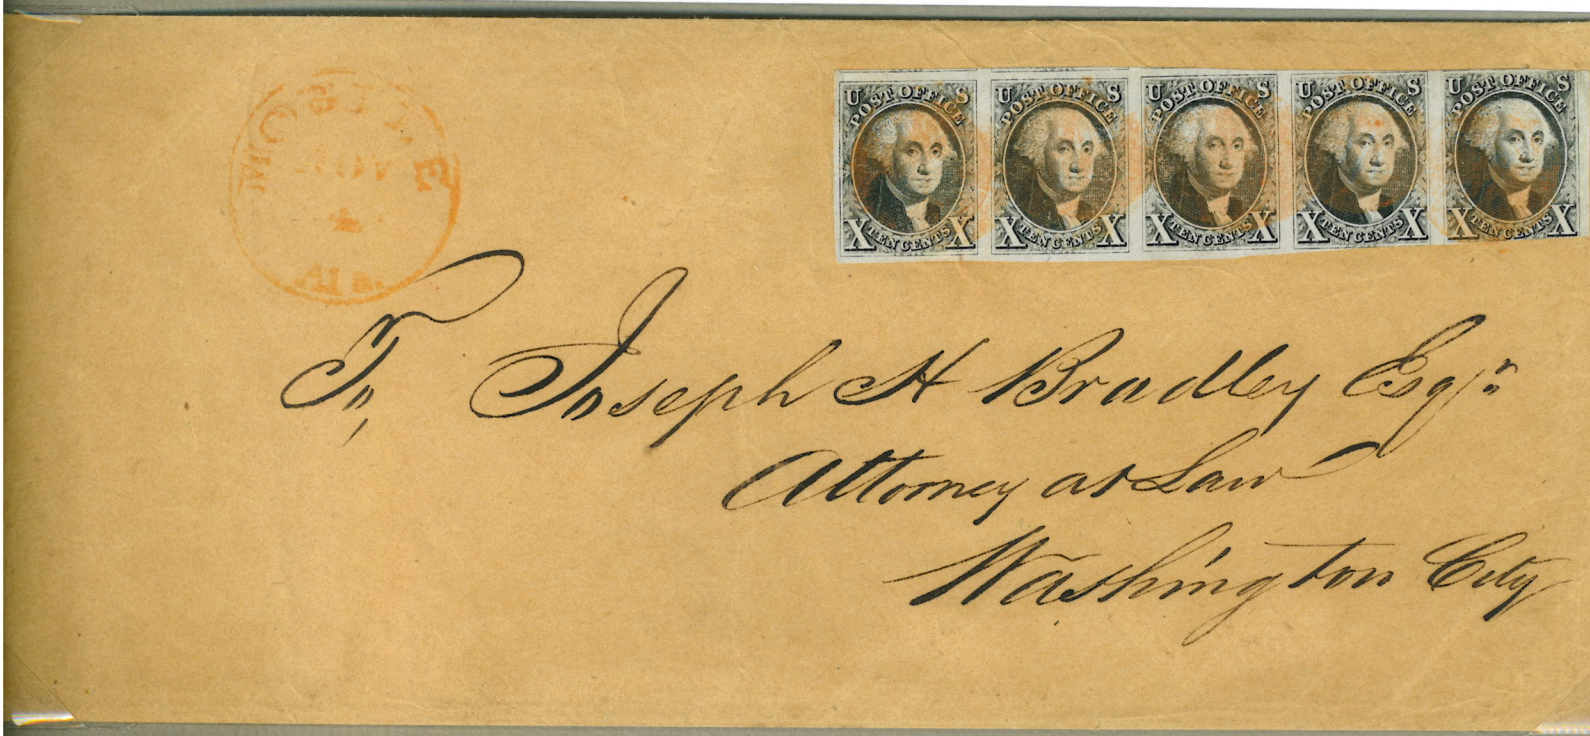 MOBILE
NOV
4
Ala.
U S
POST OFFICE
X TEN CENTS X
U S
POST OFFICE
X TEN CENTS X
U S
POST OFFICE
X TEN CENTS X
U S
POST OFFICE
X TEN CENTS X
U S
POST OFFICE
X TEN CENTS X
To,
Joseph H Bradley Esqr.
Attorney at Law
Washington City